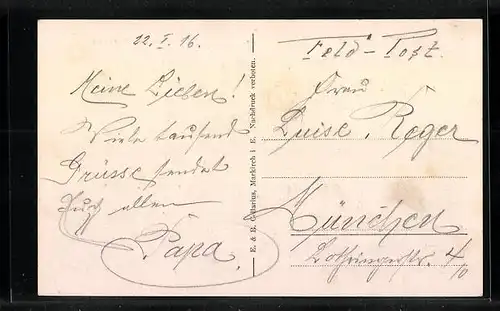 22. I. 16.
Meine Lieben!
Viele tausend
Grüsse sendet
Euch allen
Papa.
E. & B. Cellarius, Markirch i. E. Nachdruck verboten.
Feld-Post.
Frau
Luise Reger
München
Lothringerstr. 4/0